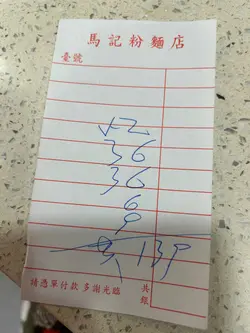 馬記粉麵店
臺號
52
36
36
6
9
139
請憑單付款 多謝光臨
共銀